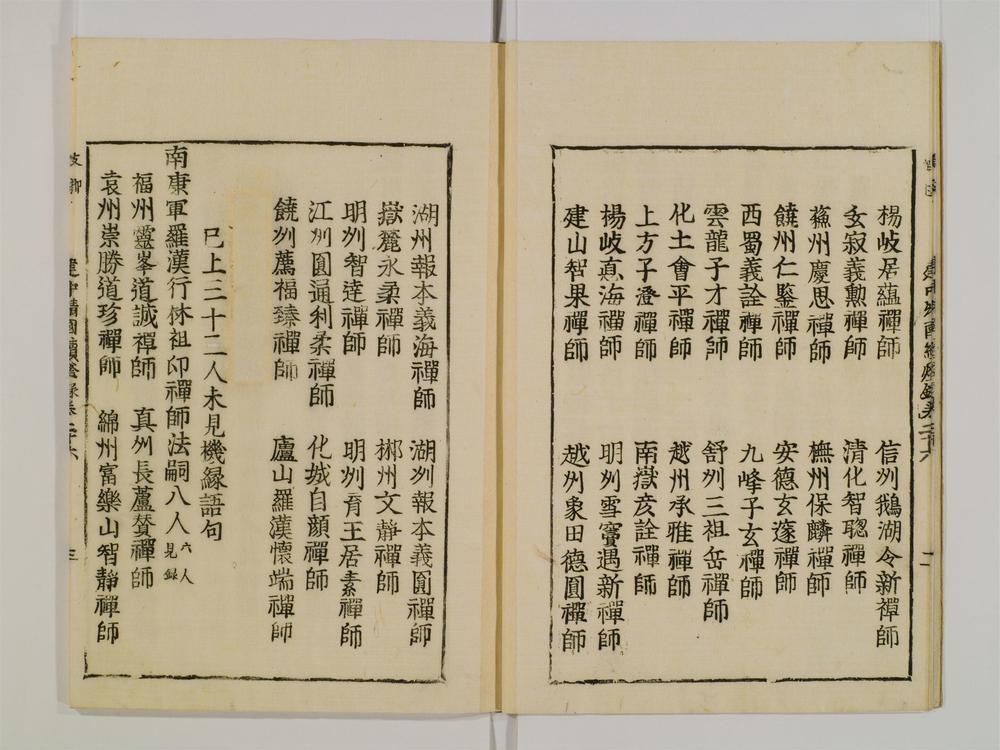 楊岐居蘊禪師 信州鵝湖令新禪師
玄寂義勳禪師 清化智聰禪師
蘓州慶思禪師 撫州保麟禪師
饒州仁鑒禪師 安德玄邃禪師
西蜀義詮禪師 九峰子玄禪師
雲龍子才禪師 舒州三祖岳禪師
化土會平禪師 越州承雅禪師
上方子澄禪師 南嶽彦詮禪師
楊岐真海禪師 明州雪竇遇新禪師
建山智果禪師 越州象田德圓禪師
湖州報本義海禪師 湖州報本義圓禪師
嶽麓永柔禪師 郴州文靜禪師
明州智達禪師 明州育王居素禪師
江州圓通利柔禪師 化城自顔禪師
饒州薦福臻禪師 廬山羅漢懷端禪師
已上三十二人未見機緣語句
南康軍羅漢行林祖印禪師法嗣八人 六人見録
福州靈峯道誠禪師 真州長蘆賛禪師
袁州崇勝道珍禪師 綿州富樂山智靜禪師
建中靖國續燈録卷二十六 三